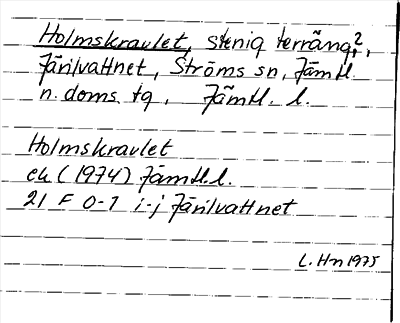 Holmskravlet, stenig terräng?,
Järilvattnet, Ströms sn, Jämtl.
n. doms. tg, Jämtl. l.
Holmskravlet
ek (1974) Jämtl.l.
21 F 0-1 i-j Järilvattnet
L. Hn 1975